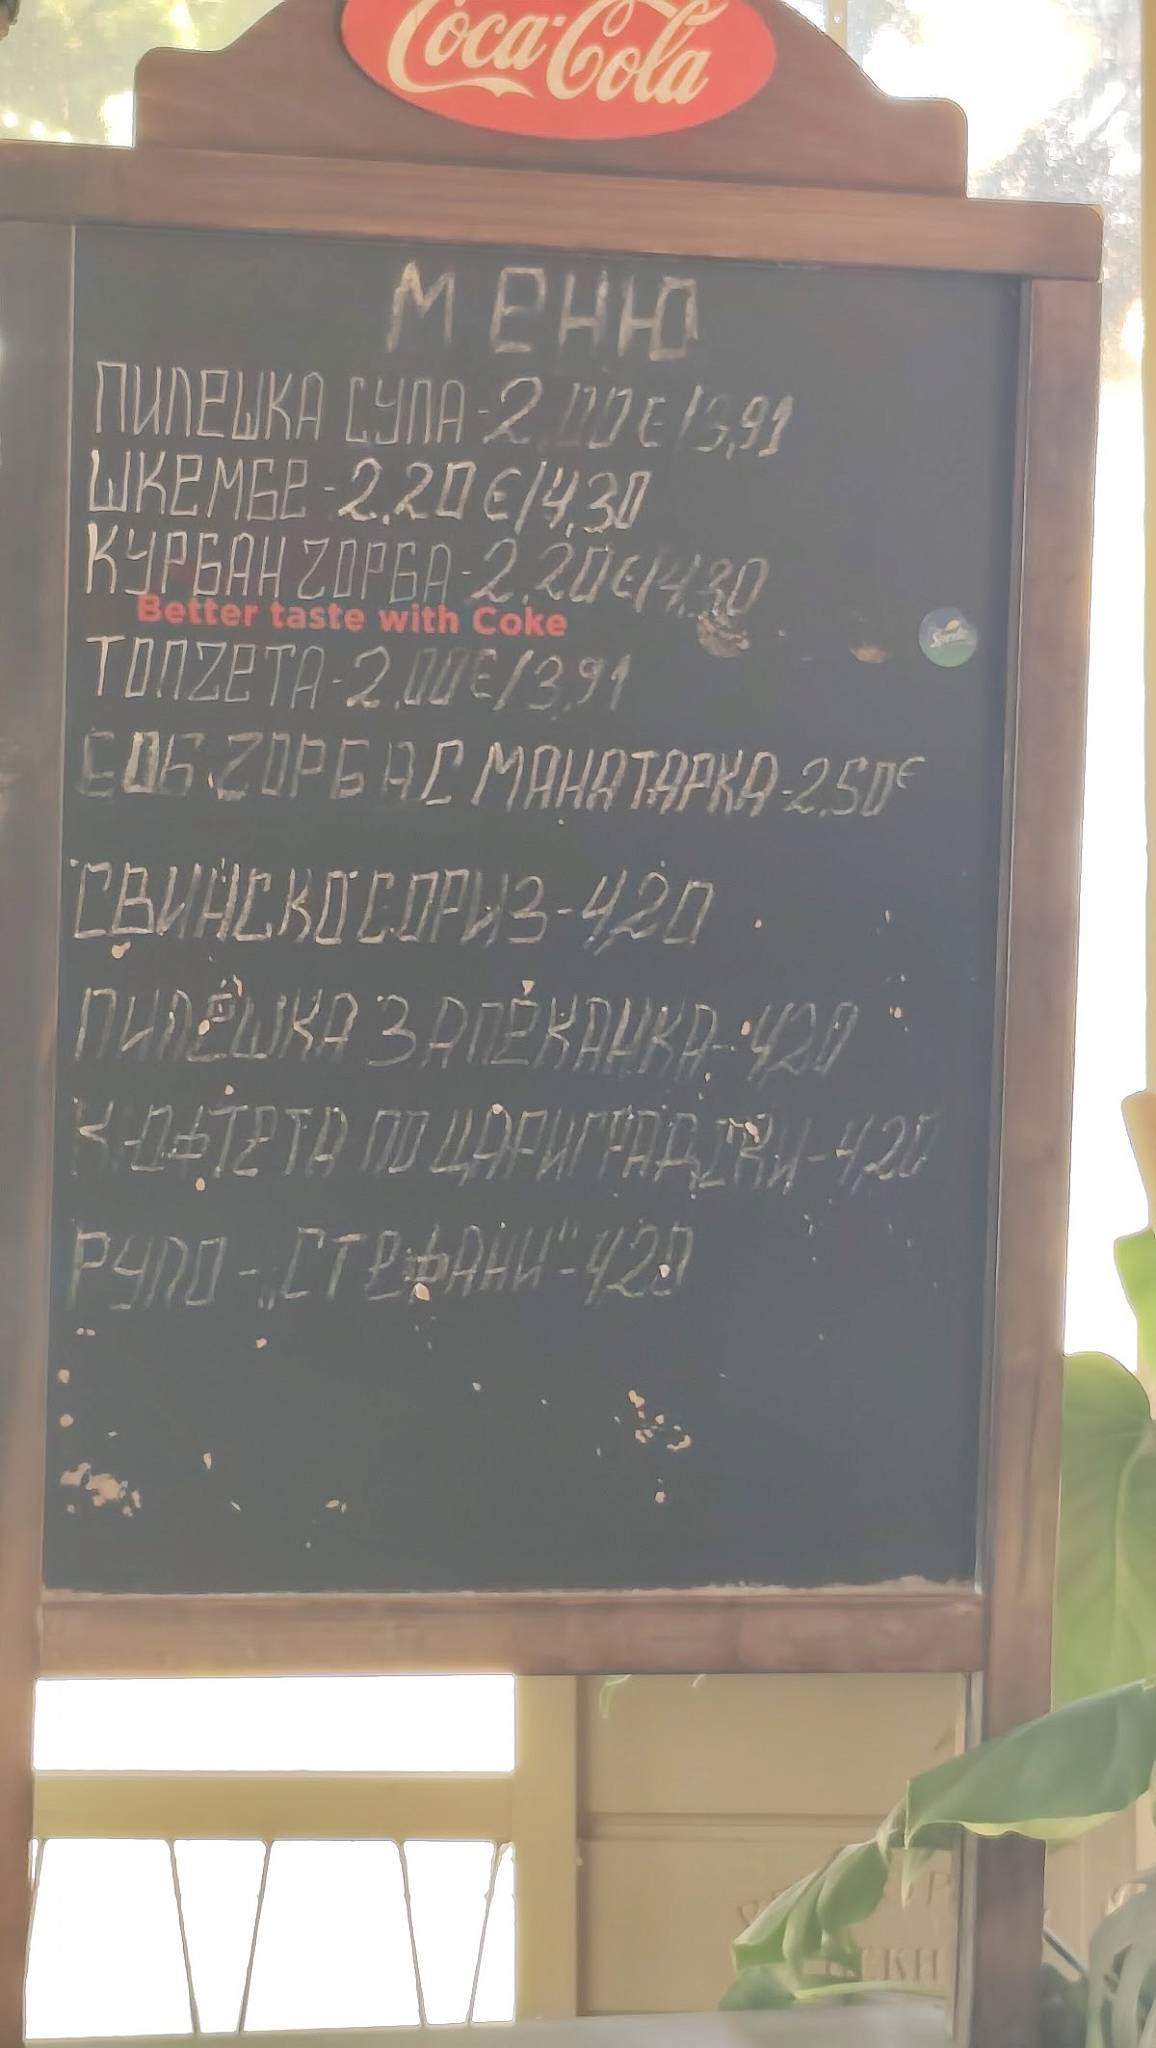 Coca-Cola
МЕНЮ
ПИЛЕШКА СУПА - 2.00 € / 3,91
ШКЕМБЕ - 2.20 € / 4,30
КУРБАН ЧОРБА - 2.20 € / 4,30
Better taste with Coke
Sprite
ТОПЧЕТА - 2.00 € / 3,91
БОБ ЧОРБА С МАНАТАРКА - 2,50 €
СВИНСКО С ОРИЗ - 4,20
ПИЛЕШКА ЗАПЕКАНКА - 4,20
КЮФТЕТА ПО ЦАРИГРАДСКИ - 4,20
РУЛО - „СТЕФАНИ“ - 4,20